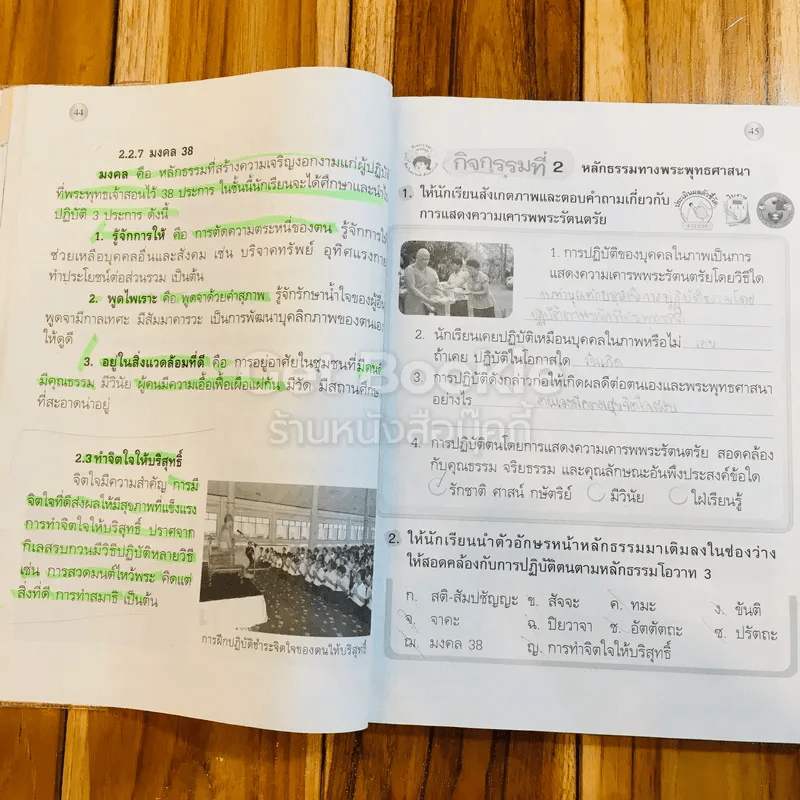 44
2.2.7 มงคล 38
มงคล คือ หลักธรรมที่สร้างความเจริญงอกงามแก่ผู้ปฏิบัติ
ที่พระพุทธเจ้าสอนไว้ 38 ประการ ในชั้นนี้นักเรียนจะได้ศึกษาและนำไป
ปฏิบัติ 3 ประการ ดังนี้
1. รู้จักการให้ คือ การตัดความตระหนี่ของตน รู้จักการให้
ช่วยเหลือบุคคลอื่นและสังคม เช่น บริจาคทรัพย์ อุทิศแรงกาย
ทำประโยชน์ต่อส่วนรวม เป็นต้น
2. พูดไพเราะ คือ พูดจาด้วยคำสุภาพ รู้จักรักษาน้ำใจของผู้อื่น
พูดจามีกาลเทศะ มีสัมมาคารวะ เป็นการพัฒนาบุคลิกภาพของตนเอง
ให้ดูดี
3. อยู่ในสิ่งแวดล้อมที่ดี คือ การอยู่อาศัยในชุมชนที่มีคน
มีคุณธรรม มีวินัย ผู้คนมีความเอื้อเฟื้อเผื่อแผ่กัน มีวัด มีสถานศึกษา
ที่สะอาดน่าอยู่
2.3 ทำจิตใจให้บริสุทธิ์
จิตใจมีความสำคัญ การมี
จิตใจที่ดีส่งผลให้มีสุขภาพที่แข็งแรง
การทำจิตใจให้บริสุทธิ์ ปราศจาก
กิเลสรบกวนมีวิธีปฏิบัติหลายวิธี
เช่น การสวดมนต์ไหว้พระ คิดแต่
สิ่งที่ดี การทำสมาธิ เป็นต้น
การฝึกปฏิบัติชำระจิตใจของตนให้บริสุทธิ์
45
กิจกรรมที่ 2 หลักธรรมทางพระพุทธศาสนา
1. ให้นักเรียนสังเกตภาพและตอบคำถามเกี่ยวกับ
การแสดงความเคารพพระรัตนตรัย
1. การปฏิบัติของบุคคลในภาพเป็นการ
แสดงความเคารพพระรัตนตรัยโดยวิธีใด
2. นักเรียนเคยปฏิบัติเหมือนบุคคลในภาพหรือไม่ เคย
ถ้าเคย ปฏิบัติในโอกาสใด วันเกิด
3. การปฏิบัติดังกล่าวก่อให้เกิดผลดีต่อตนเองและพระพุทธศาสนา
อย่างไร
4. การปฏิบัติตนโดยการแสดงความเคารพพระรัตนตรัย สอดคล้อง
กับคุณธรรม จริยธรรม และคุณลักษณะอันพึงประสงค์ข้อใด
รักชาติ ศาสน์ กษัตริย์ มีวินัย ใฝ่เรียนรู้
2. ให้นักเรียนนำตัวอักษรหน้าหลักธรรมมาเติมลงในช่องว่าง
ให้สอดคล้องกับการปฏิบัติตนตามหลักธรรมโอวาท 3
ก. สติ-สัมปชัญญะ ข. สัจจะ ค. ทมะ ง. ขันติ
จ. จาคะ ฉ. ปิยวาจา ช. อัตตัตถะ ซ. ปรัตถะ
ฌ. มงคล 38 ญ. การทำจิตใจให้บริสุทธิ์
ร้านหนังสือบุ๊คกี้